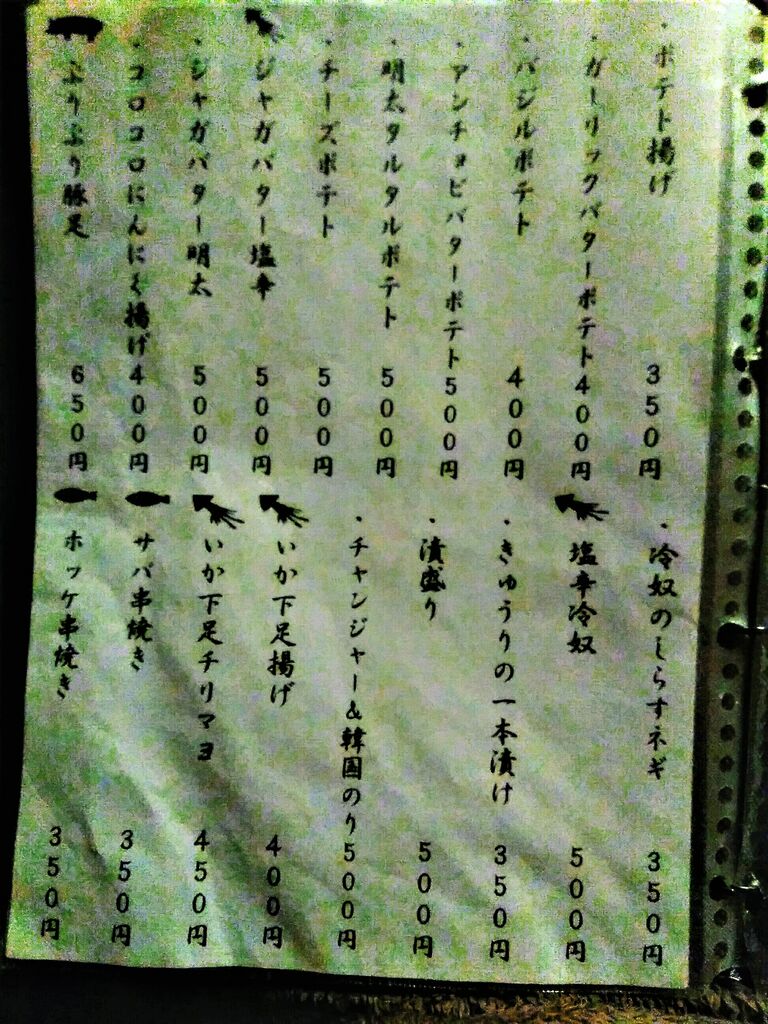 ・ポテト揚げ 350円
・ガーリックバターポテト 400円
・バジルポテト 400円
・アンチョビバターポテト 500円
・明太タルタルポテト 500円
・チーズポテト 500円
ジャガバター塩辛 500円
・ジャガバター明太 500円
・コロコロにんにく揚げ 400円
ぷりぷり豚足 650円
・冷奴のしらすネギ 350円
塩辛冷奴 500円
・きゅうりの一本漬け 350円
・漬盛り 500円
・チャンジャー&韓国のり 500円
いか下足揚げ 400円
いか下足チリマヨ 450円
サバ串焼き 350円
ホッケ串焼き 350円